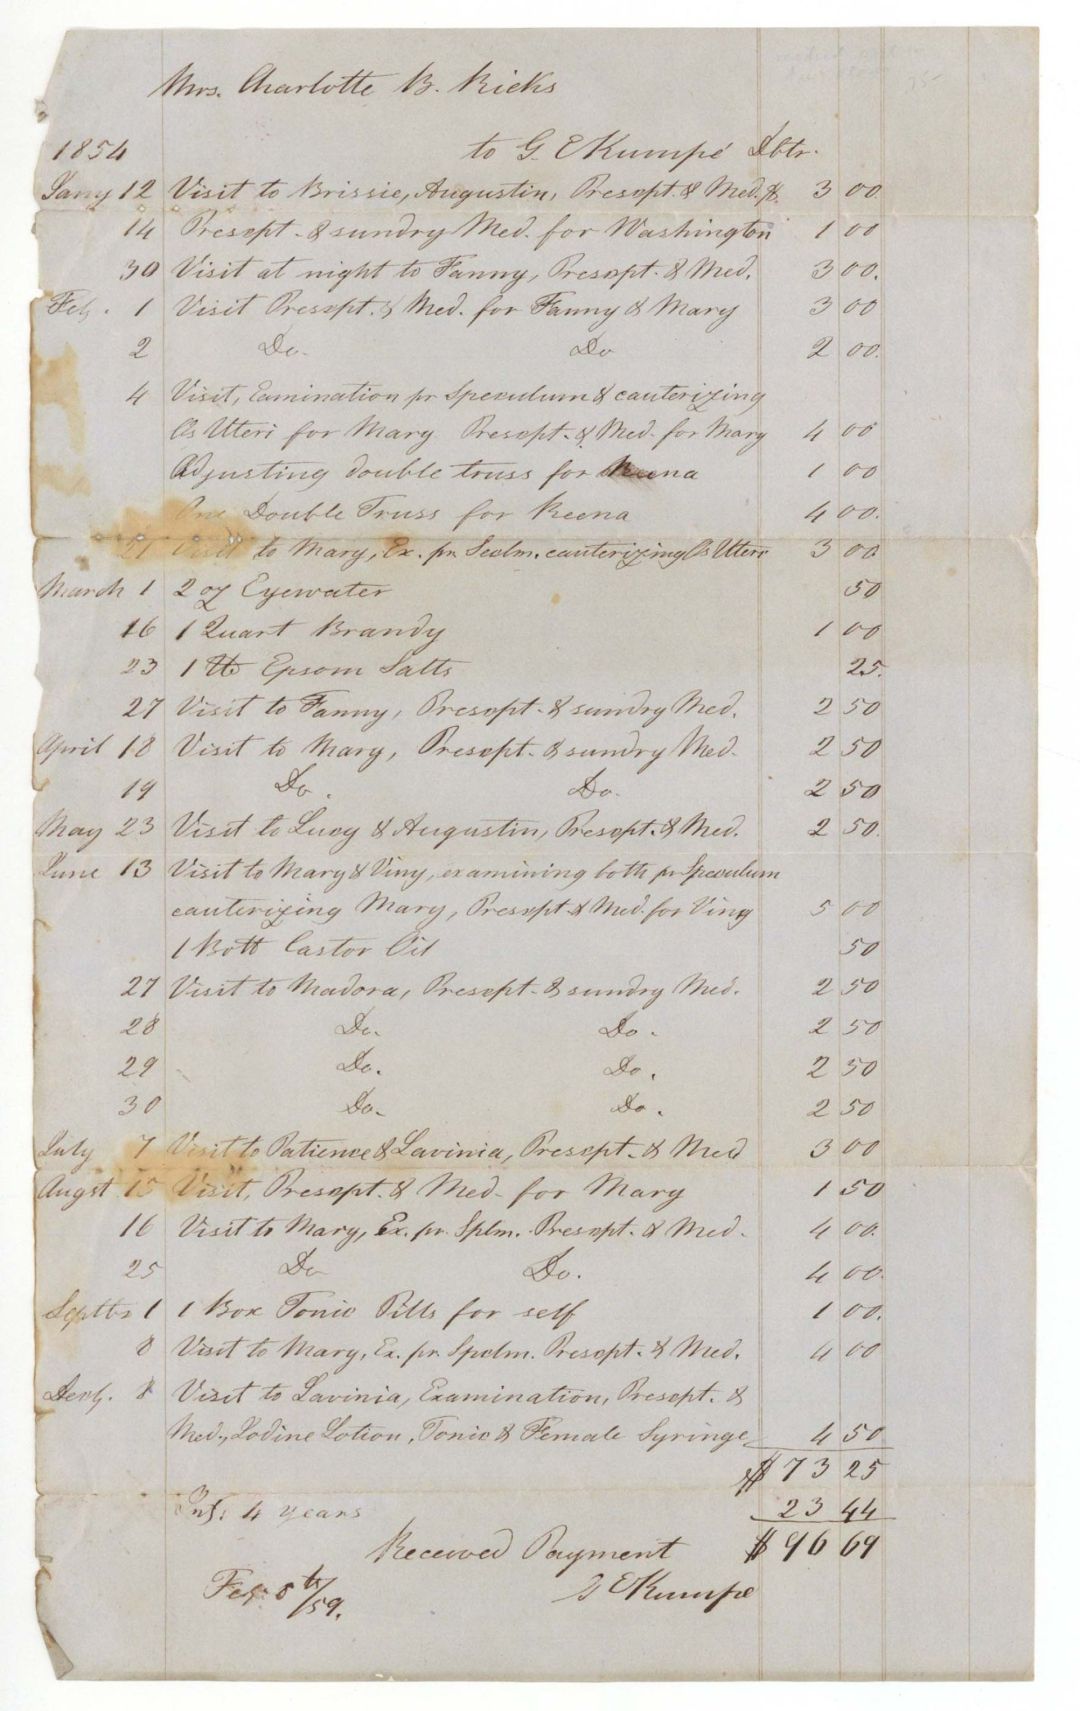 Mrs. Charlotte B. Ricks
1854 to G. E Kumpé Dbtr.
Jany 12 Visit to Brissie, Augustin, Prescpt. & Med. &. 3 00
14 Prescpt. & sundry Med. for Washington 1 00
30 Visit at night to Fanny, Prescpt. & Med. 3 00.
Feb. 1 Visit Prescpt. & Med. for Fanny & Mary 3 00
2 Do. Do 2 00.
4 Visit, Examination pr Speculum & cauterizing
Os Uteri for Mary Prescpt. & Med. for Mary 4 00
Adjusting double truss for Keena 1 00
One Double Truss for Keena 4 00.
21 Visit to Mary, Ex. pr. Spclm. cauterizing Os Uteri 3 00
March 1 2 oz Eyewater 50
16 1 Quart Brandy 1 00
23 1 lb Epsom Salts 25.
27 Visit to Fanny, Prescpt. & sundry Med. 2 50
April 18 Visit to Mary, Prescpt. & sundry Med. 2 50
19 Do. Do. 2 50
May 23 Visit to Lucy & Augustin, Prescpt. & Med. 2 50.
June 13 Visit to Mary & Viny, examining both pr Speculum
cauterizing Mary, Prescpt & Med. for Viny 5 00
1 Bott Castor Oil 50
27 Visit to Madora, Prescpt. & sundry Med. 2 50
28 Do. Do. 2 50
29 Do. Do. 2 50
30 Do. Do. 2 50
July 7 Visit to Patience & Lavinia, Prescpt. & Med 3 00
Augst 15 Visit, Prescpt. & Med. for Mary 1 50
16 Visit to Mary, Ex. pr. Splm. Prescpt. & Med. 4 00.
25 Do Do. 4 00.
Septbr 1 1 Box Tonic Pills for self 1 00.
8 Visit to Mary, Ex. pr. Spclm. Prescpt. & Med. 4 00
Decb. 8 Visit to Lavinia, Examination, Prescpt. &
Med., Iodine Lotion, Tonic & Female Syringe 4 50
$ 73 25
Int: 4 years 23 44
Received Payment $ 96 69
Feb. 8th/59. G E Kumpé